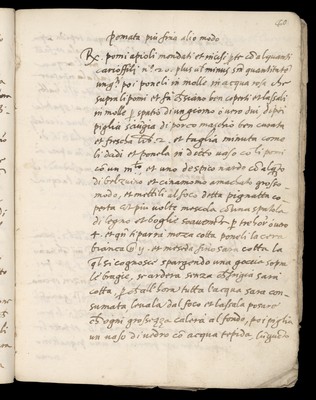 40
Pomata piu fina alio modo
Rx. pomi apioli mondati et incisi per
cariofili nº 20. plus ul minus sm quantitate
ung. poi poneli in molle in acqua rosa
supra li pomi et fa siano ben coperti et lassali
in molle p spatio di un giorno o vero dui dipoi
piglia songia di porco maschio ben curata
et frescha lib. 2. et taglia minuta como
li dadi et ponela in detto vaso co li pomi
co un et uno de spico nardo co
di belzuino et cinamomo amachati grosso
modo, et mettili al foco detta pignatta co-
perta et piu volte mescola co una spatola
di legno et boglie p tre hore overo
4. et qui parrà meza cotta poneli la cera
biancha et mescda, fino sarà cotta la
ql si cognosce spargendo una goccia sopra
le bragie, se arderà senza strigia sarà
cotta, p all hora tutta l'acqua sarà con-
sumata levala dal foco et lassala posare
ch ogni grossezza calerà al fondo, poi piglia
un vaso di vedro co acqua tepida,